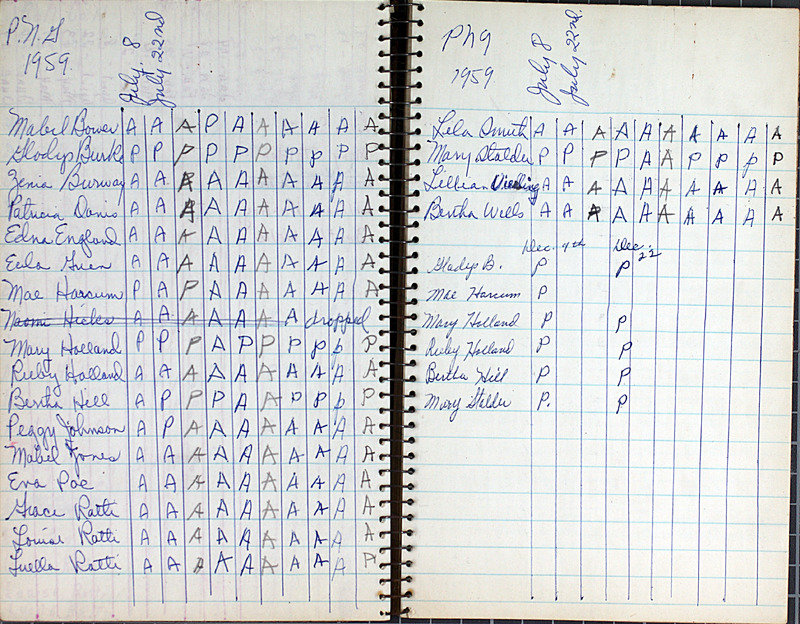 P.N.G
1959
July 8
July 22nd
Mabel Bower A A A P A A A A A A
Gladys Burke P P P P P P P P P P
Zenia Burway A A A A A A A A A A
Patricia Davis A A A A A A A A A A
Edna England A A A A A A A A A A
Eula Green A A A A A A A A A A
Mae Harcum P A P A A A A A A A
Naomi Hicks A A A A A A A dropped
Mary Holland P P P A P P P P P P
Ruby Holland A A A A A A A A A A
Bertha Hill A P P P A A P P P P
Peggy Johnson A P A A A A A A A A
Mabel Jones A A A A A A A A A A
Eva Poe A A A A A A A A A A
Grace Ratti A A A A A A A A A A
Louise Ratti A A A A A A A A A A
Luella Ratti A A A A A A A A A
PNG
1959
July 8
July 22nd.
Lela Smith A A A A A A A A A A
Mary Stalder P P P P A A P P P P
Lillian A A A A A A A A A A
Bertha Wells A A A A A A A A A A
Dec. 9th Dec. 22
Gladys B. P P
Mae Harcum P
Mary Holland P P
Ruby Holland P P
Bertha Hill P P
Mary Stalder P. P